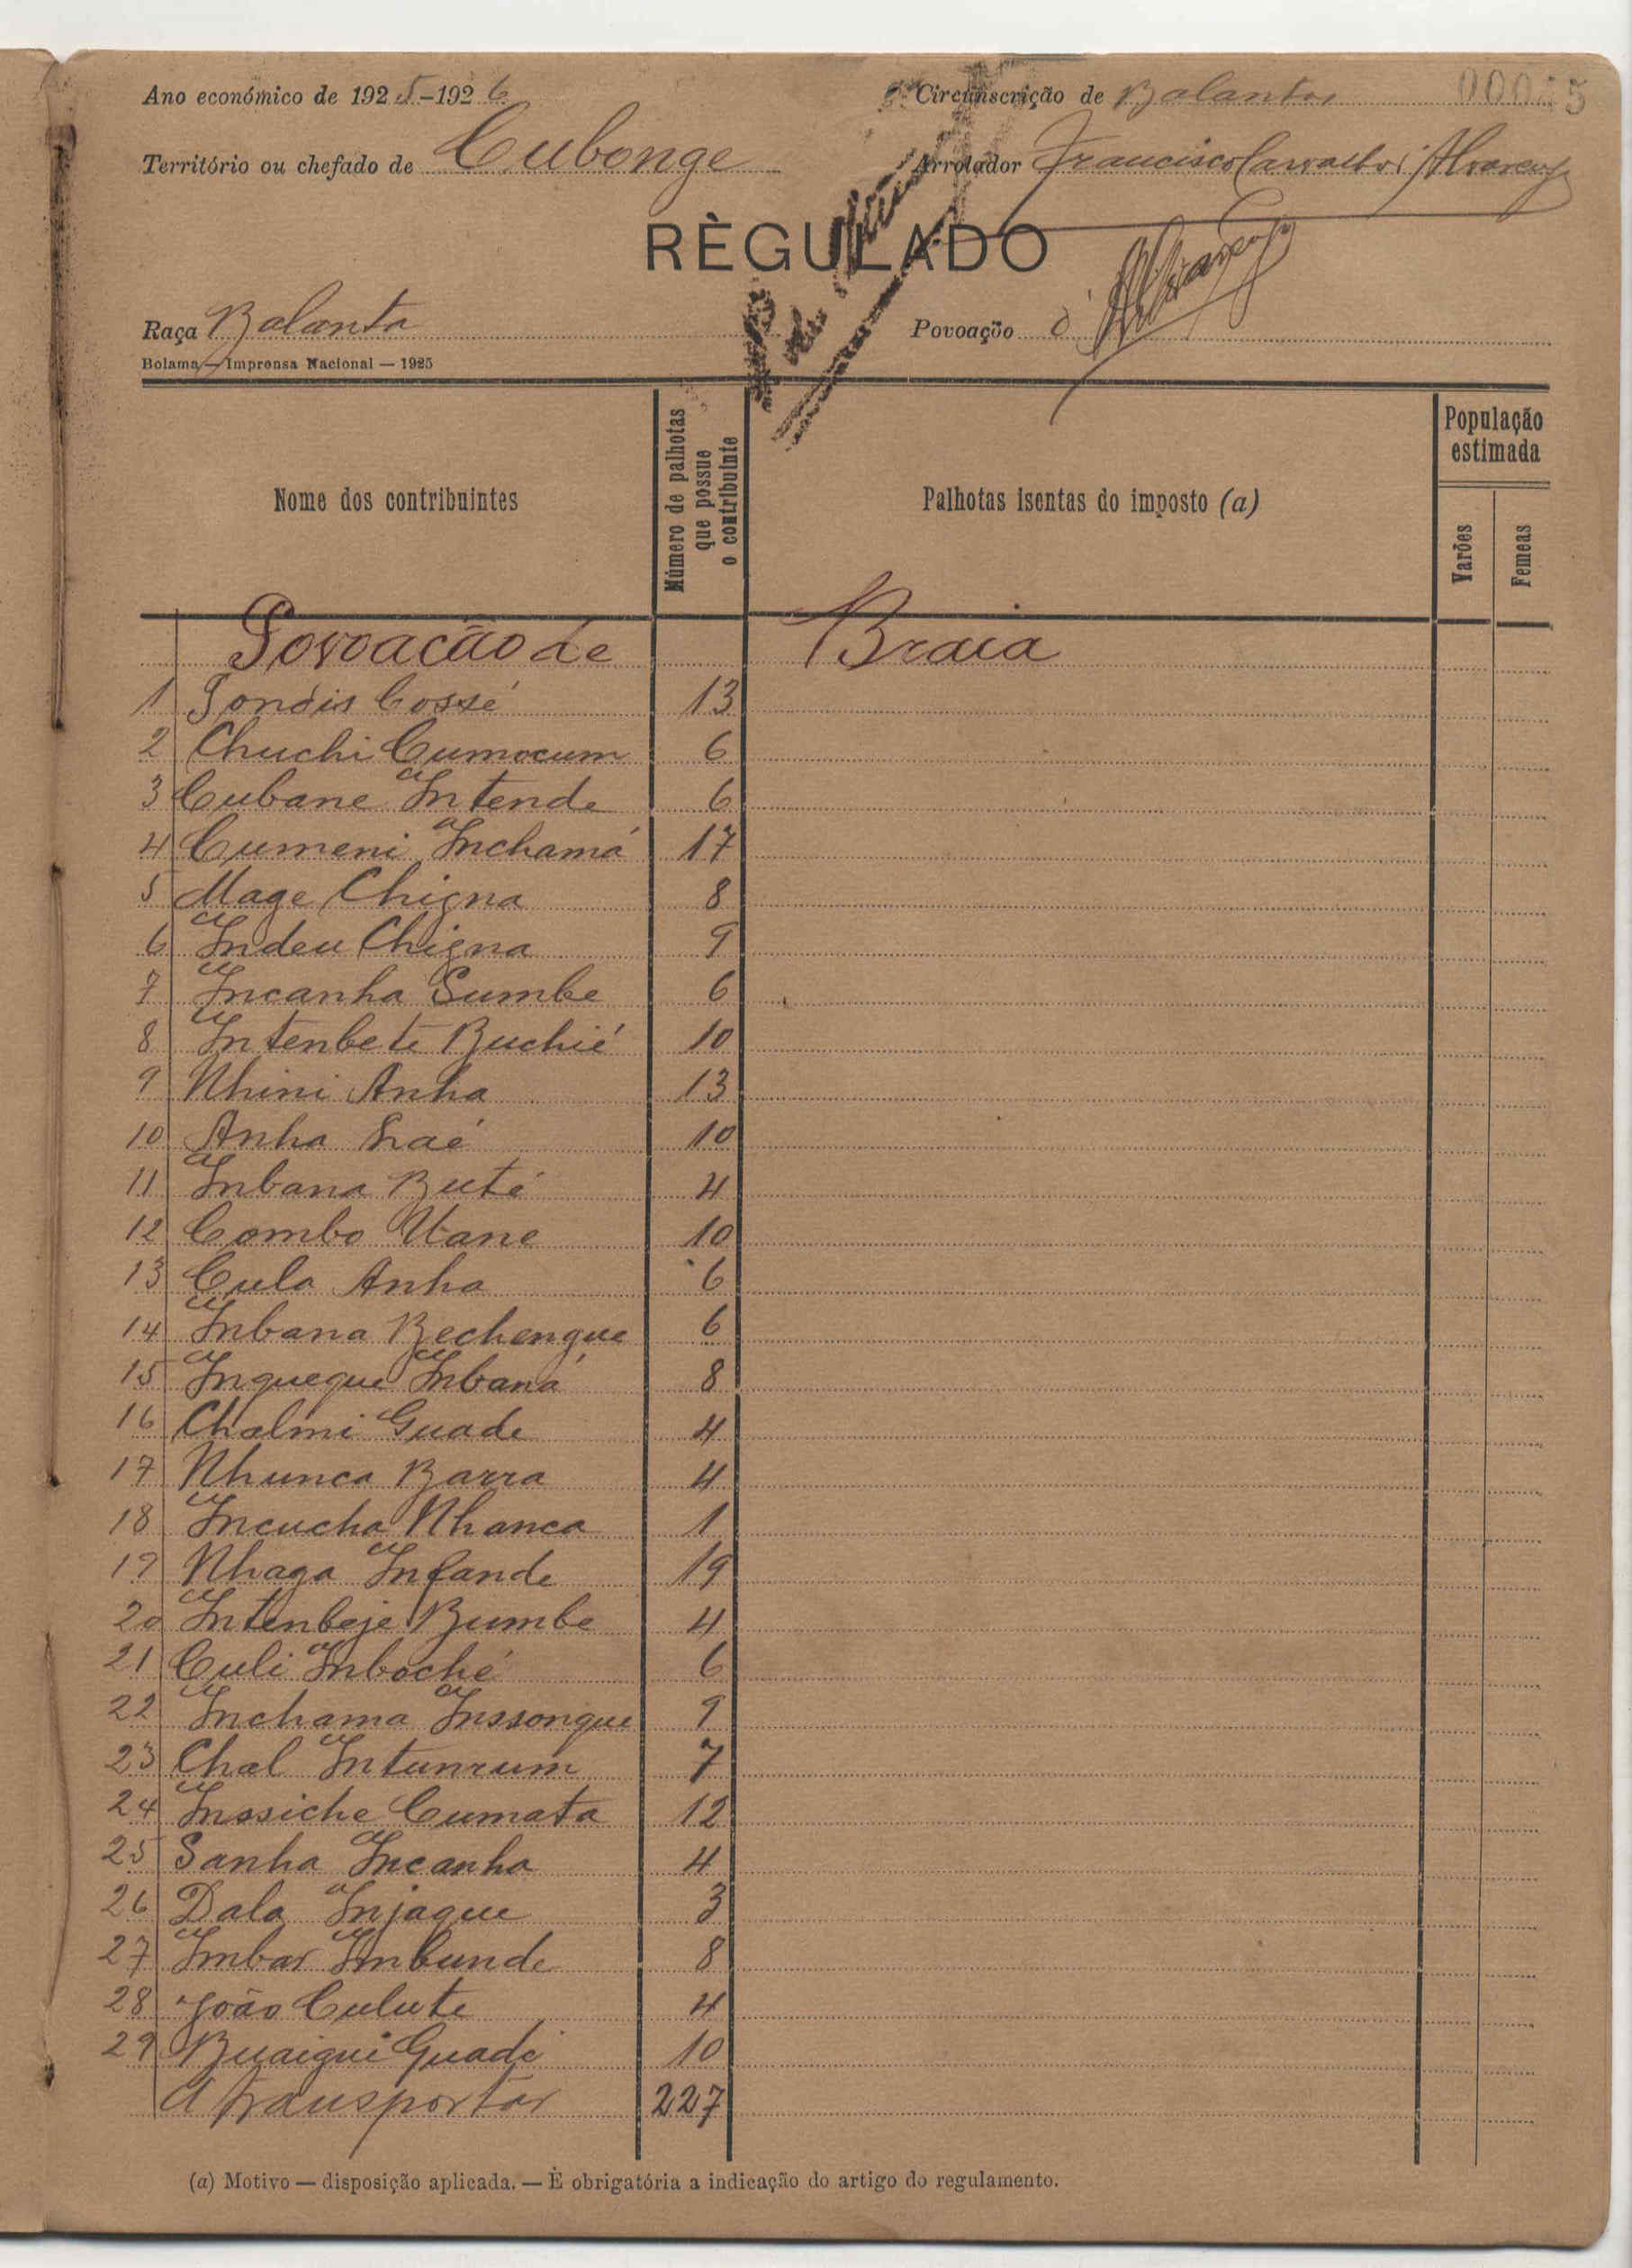 Ano económico de 1925-1926
Circunscrição de Balantas
00015
Território ou chefado de Cubonge
Arrolador Francisco Carvalho Alvarenga
RÈGULADO
Raça Balanta
Povoação
Alvarenga
Bolama — Imprensa Nacional — 1925
Nome dos contribuintes
Número de palhotas que possue o contribuinte
Palhotas isentas do imposto (a)
População estimada
Varões
Femeas
Povoacão de Braia
1 Tondis Cossé 13
2 Chuchi Cumocum 6
3 Cubane Intende 6
4 Cumeni Inchamá 17
5 Mage Chigna 8
6 Indeu Chigna 9
7 Incanha Sumbe 6
8 Intenbete Buchié 10
9 Nhini Anha 13
10 Anha 10
11 Inbana Buté 4
12 Combo Utane 10
13 Cula Anha 6
14 Inbana Bechengue 6
15 Inquegue Inbaná 8
16 Chalmi Guade 4
17 Nhunca Barra 4
18 Incucha Nhanca 1
19 Nhaga Infande 19
20 Intenbeje Bumbe 4
21 Culi Inboché 6
22 Inchama Inssongue 9
23 Chal Intunrum 7
24 Inssiche Cumata 12
25 Sanha Incanha 4
26 Dala Injaque 3
27 Imbar Imbunde 8
28 João Culute 4
29 Buaigui Guade 10
A transportar 227
(a) Motivo — disposição aplicada. — È obrigatória a indicação do artigo do regulamento.